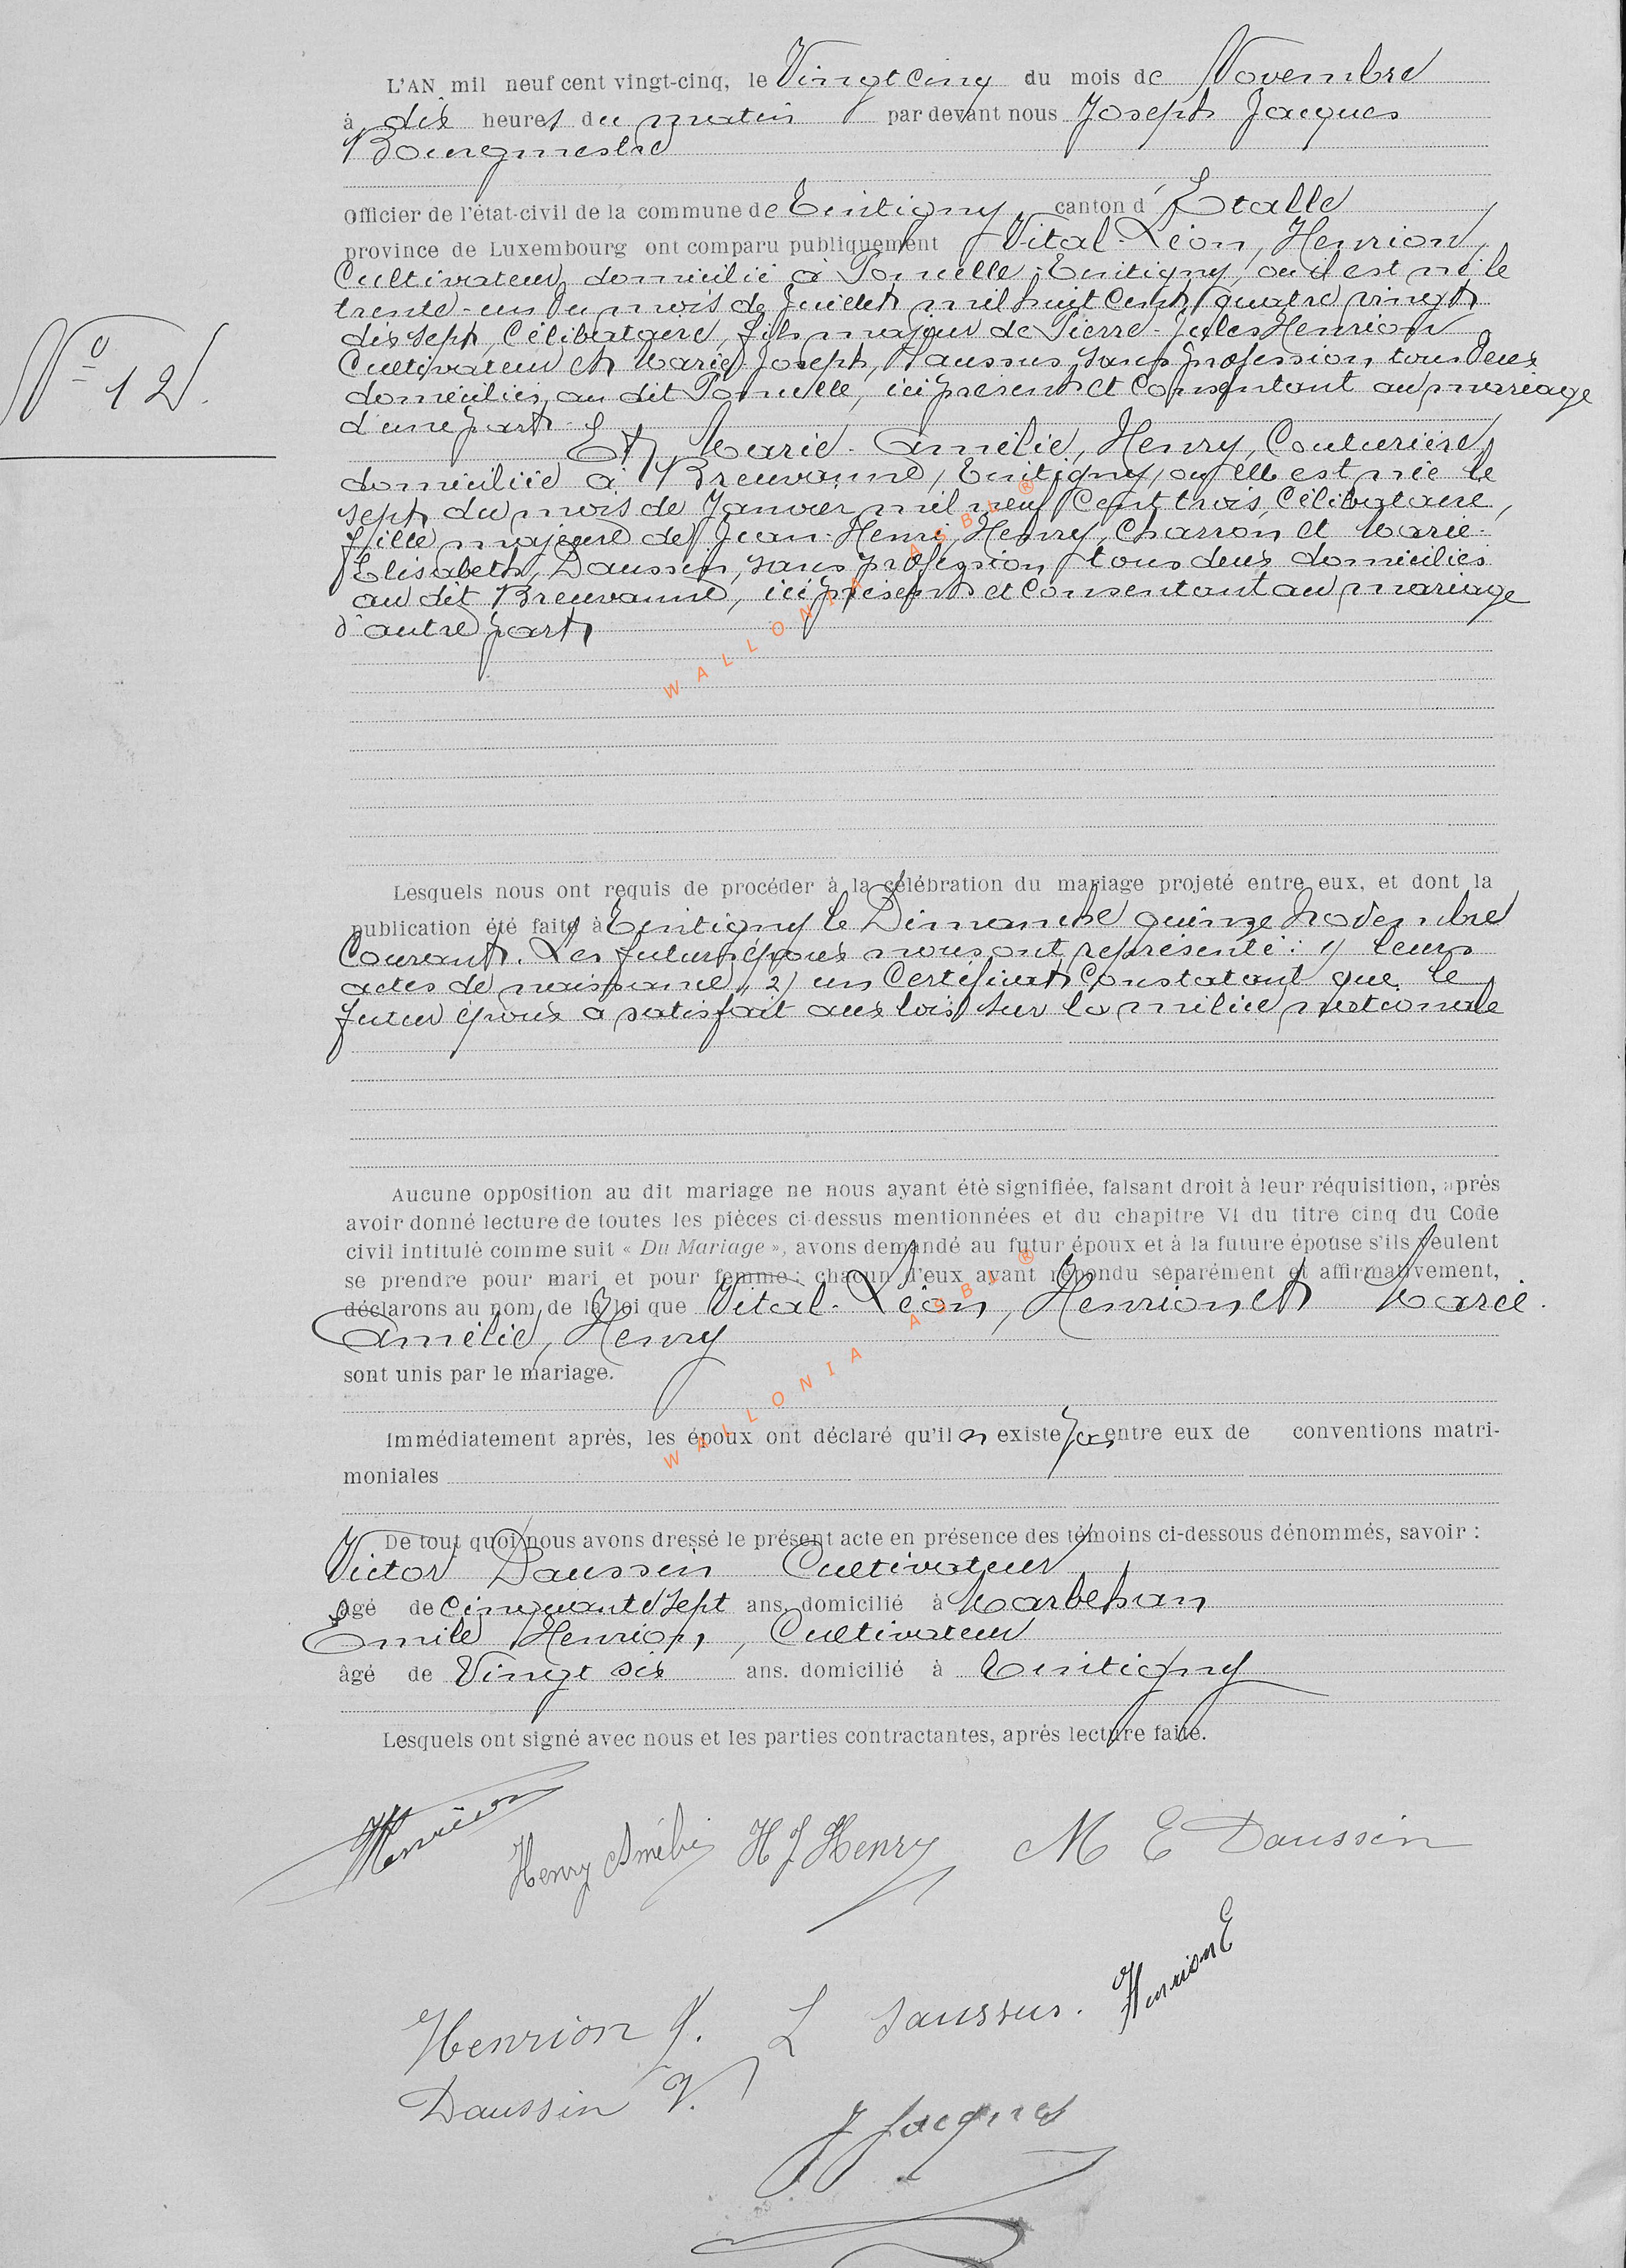 L'AN mil neuf cent vingt-cinq, le Vingt cinq du mois de Novembre
à dix heures du matin par devant nous Joseph Jacques
Bourgmestre
Officier de l'état-civil de la commune de Tintigny, canton d'Etalle
province de Luxembourg ont comparu publiquement Vital-Léon, Henrion,
Cultivateur, domicilié à Poncelle-Tintigny, où il est né le
trente-un du mois de Juillet mil huit cent quatre vingt
dix sept, Célibataire, fils majeur de Pierre-Jules Henrion
Cultivateur et Marie Joseph, Saussus, sans profession, tous deux
domiciliés au dit Poncelle, ici présents et consentant au mariage
d'une part.
Et, Marie-Amélie, Henry, Couturière,
domiciliée à Breuvanne, Tintigny, où elle est née le
sept du mois de Janvier mil neuf Cent trois, Célibataire,
fille majeure de Jean-Henri, Henry, Charron et Marie-
Elisabeth, Daussin, sans profession tous deux domiciliés
au dit Breuvanne, ici présents et Consentant au mariage
d'autre part
WALLONIA ASBL ®
N° 12.
Lesquels nous ont requis de procéder à la célébration du mariage projeté entre eux, et dont la
publication été faite à Tintigny le Dimanche quinze Novembre
Courant. Les futurs époux nous ont représenté : 1) leurs
actes de naissance, 2) un Certificat Constatant que le
futur époux a satisfait aux lois sur la milice nationale
Aucune opposition au dit mariage ne nous ayant été signifiée, faisant droit à leur réquisition, après
avoir donné lecture de toutes les pièces ci-dessus mentionnées et du chapitre VI du titre cinq du Code
civil intitulé comme suit « Du Mariage », avons demandé au futur époux et à la future épouse s'ils veulent
se prendre pour mari et pour femme ; chacun d'eux ayant répondu séparément et affirmativement,
déclarons au nom de la loi que Vital-Léon, Henrion et Marie-
Amélie, Henry
sont unis par le mariage.
WALLONIA ASBL ®
Immédiatement après, les époux ont déclaré qu'il n existe pas entre eux de conventions matri-
moniales
De tout quoi nous avons dressé le présent acte en présence des témoins ci-dessous dénommés, savoir :
Victor Daussin Cultivateur
âgé de Cinquante sept ans, domicilié à Marbehan
Emile Henrion, Cultivateur
âgé de Vingt six ans. domicilié à Tintigny
Lesquels ont signé avec nous et les parties contractantes, après lecture faite.
Henrion
Henry Amélie H J Henry M E Daussin
Henrion J. L Saussus. Henrion E
Daussin V.
J Jacques